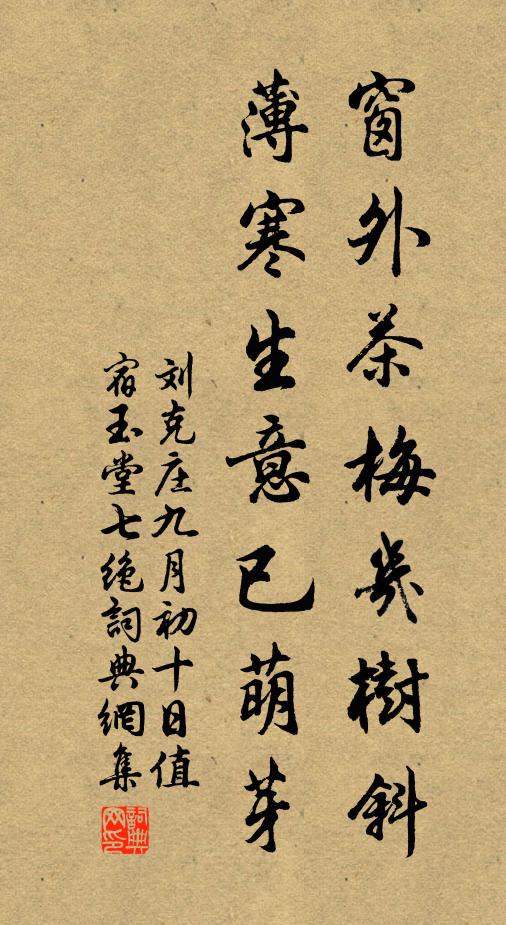 窗外茶梅幾樹斜
薄寒生意已萌芽
刘克庄九月初十日值
宿玉堂七绝詞典網集
詞典網印